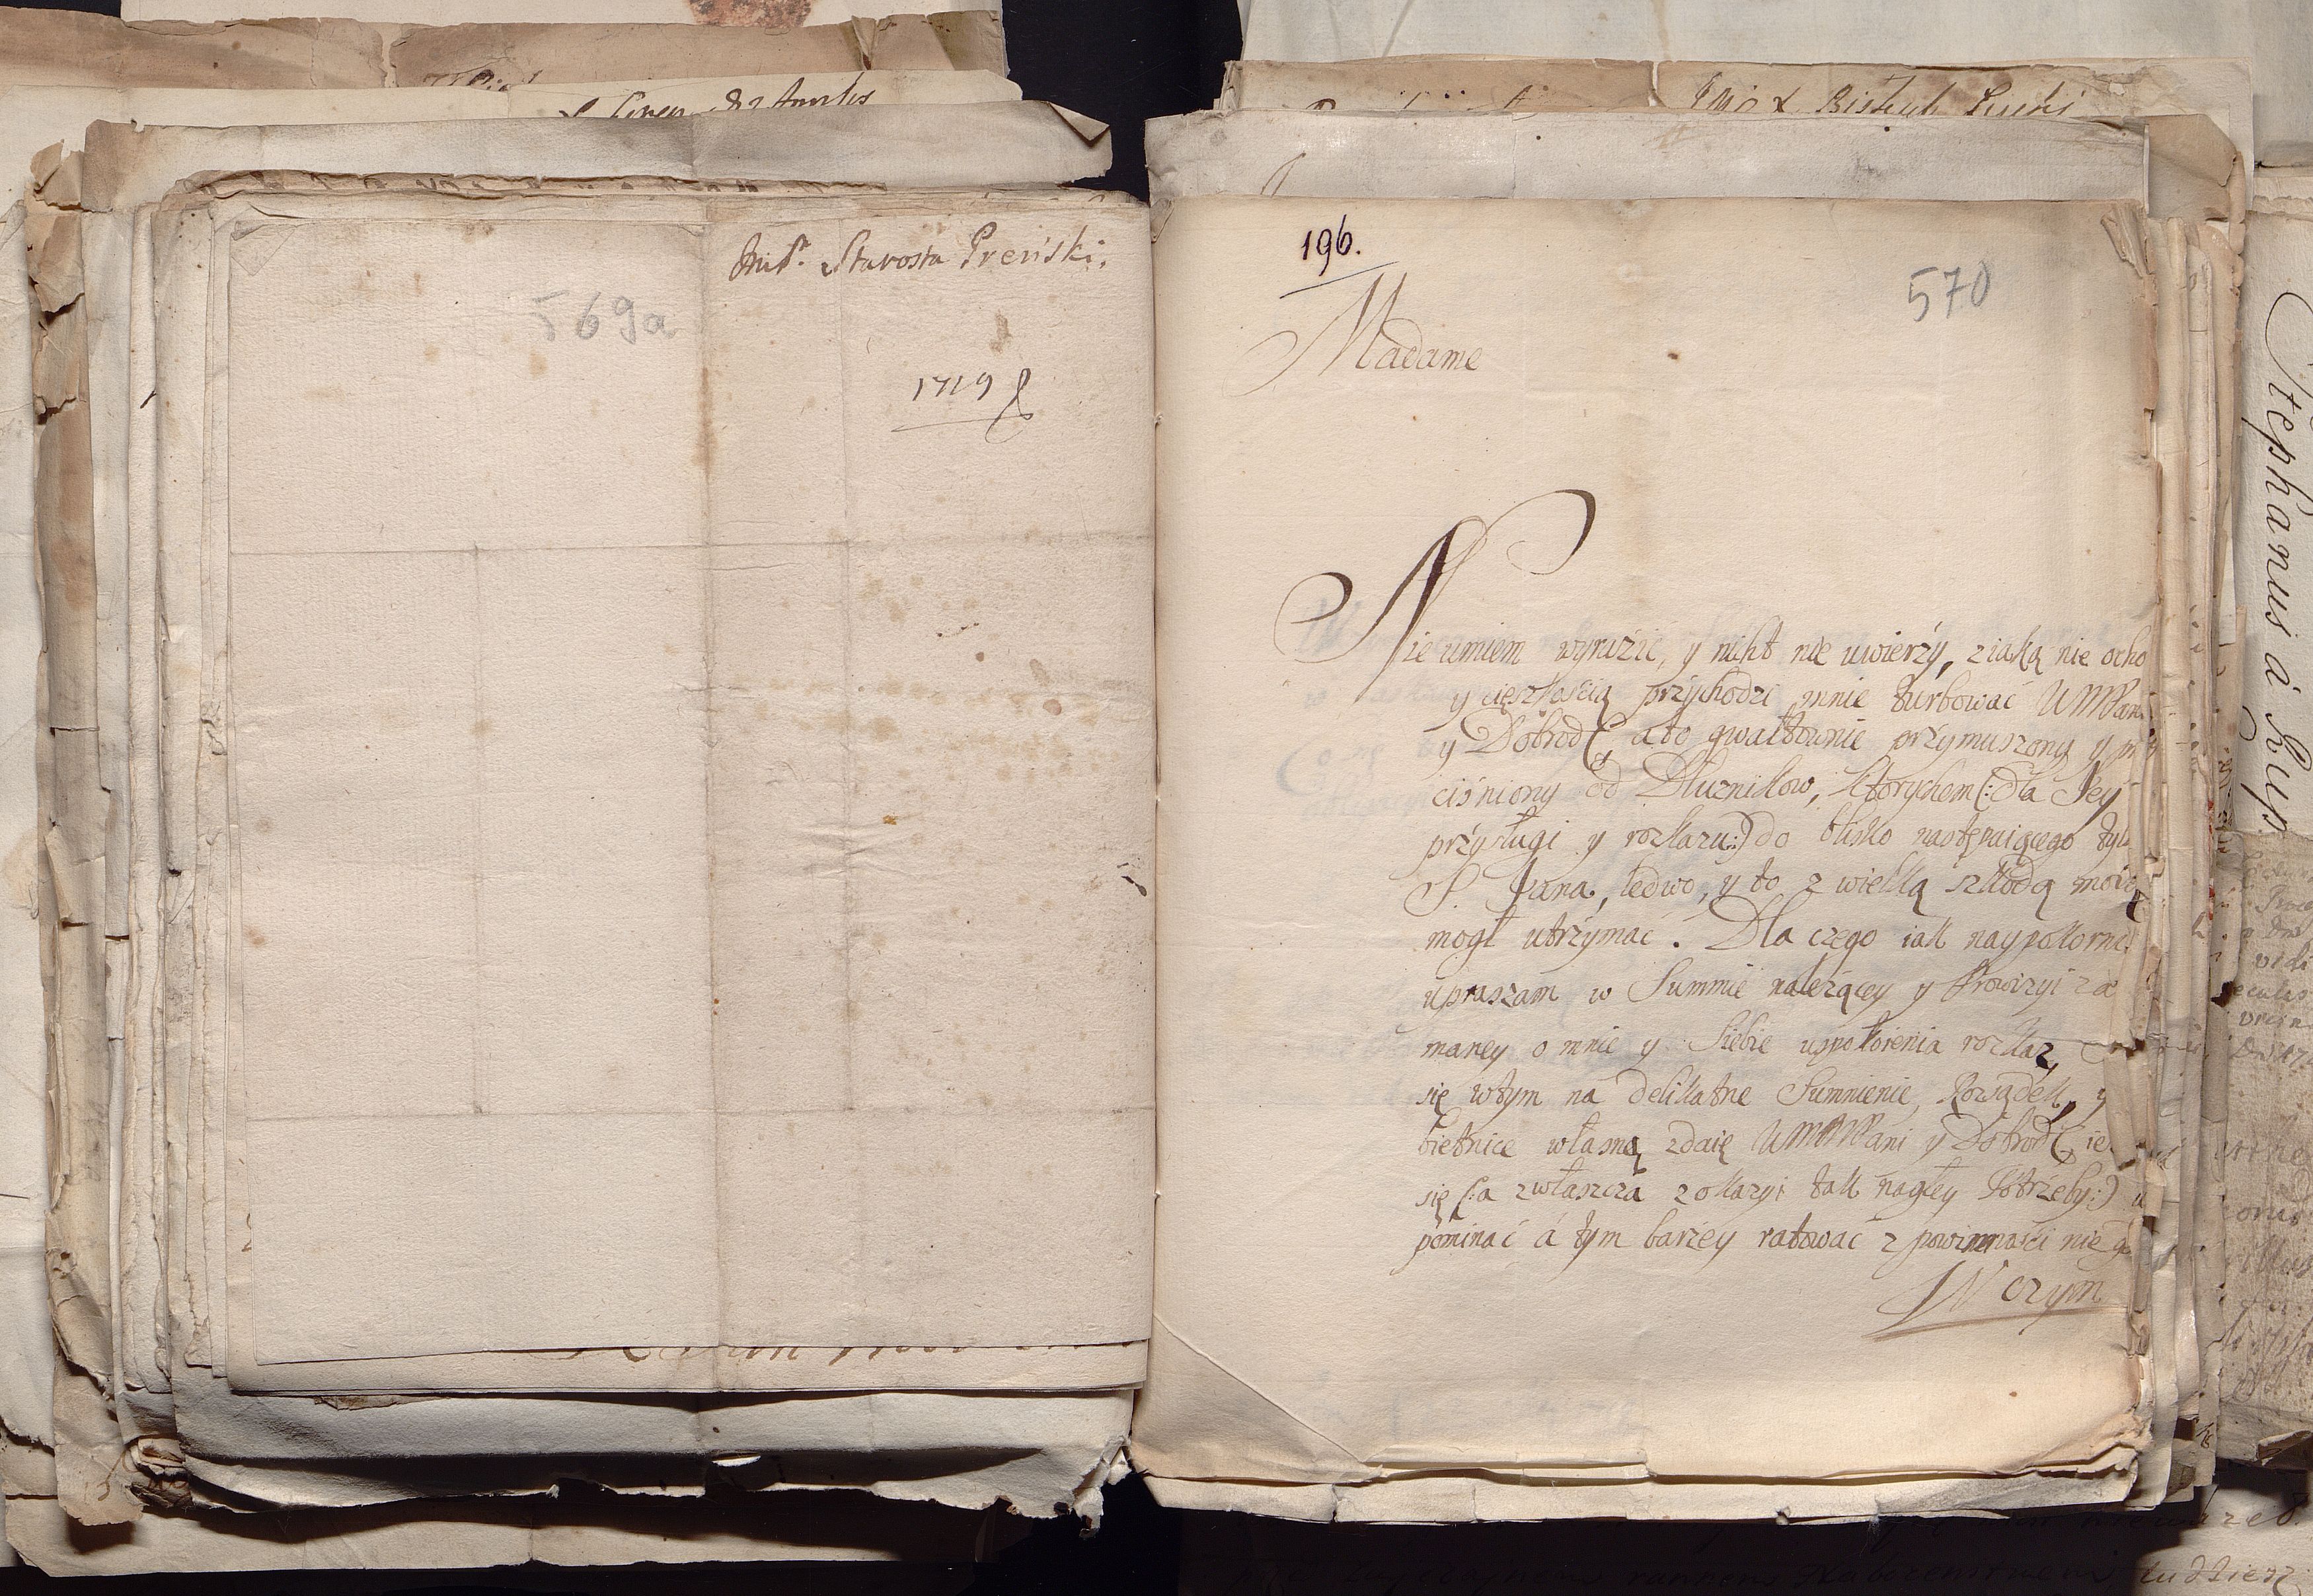 Biskup Łucki
Imp. Starosta Preński.
569a
1719
196.
570
Madame
Nie umiem wyrazić, y nikt nie uwierzy, z iaką nie ocho
y cięszkością przychodzi mnie turbować WMPani
y Dobrodę a to gwałtownie przymuszony y pr
ciśniony od Dłuznikow, ktorychem (:dla Jey
przysługi y rozkazu:) do blisko następuiącego tyl
S. Jana, ledwo, y to z wielką szkodą moią
mogł utrzymać. Dla czego iak naypokornie
upraszam w Summie nalezącey y Prowizyi za
maney o mnie y Siebie uspokoienia rozkaz,
się w tym na delikatne Sumnienie, Rosądek, y
bietnice własną zdaię WMMPani y Dobrodę ie
się (:a zwłaszcza z okazyi tak nagłey Potrzeby:) u
pominać á tym barzey ratować z powinnosci nie go
W czym
Stephanus á Rup